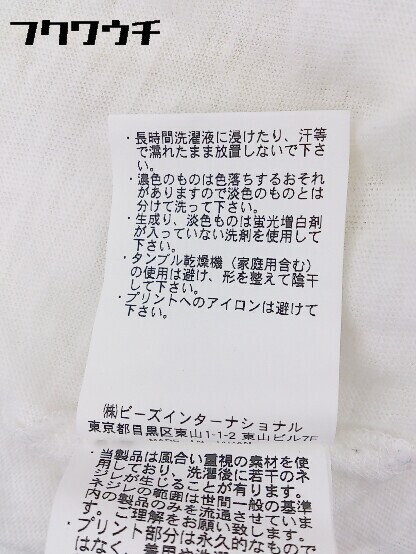 フクワウチ
・長時間洗濯液に浸けたり、汗等
で濡れたまま放置しないで下さ
い。
・濃色のものは色落ちするおそれ
がありますので淡色のものとは
分けて洗って下さい。
・生成り、淡色ものは蛍光増白剤
が入っていない洗剤を使用して
下さい。
・タンブル乾燥機（家庭用含む）
の使用は避け、形を整えて陰干
して下さい。
・プリントへのアイロンは避けて
下さい。
㈱ビーズインターナショナル
東京都目黒区東山1-1-2 東山ビル7F
・当製品は風合い重視の素材を使
用しており、洗濯後に若干のネ
ジレが生じることが有ります。
ネジレの範囲は世間一般の基準
内の製品のみを流通させていま
す。ご理解をお願い致します。
・プリント部分は永久的なもので
はなく、着用や洗